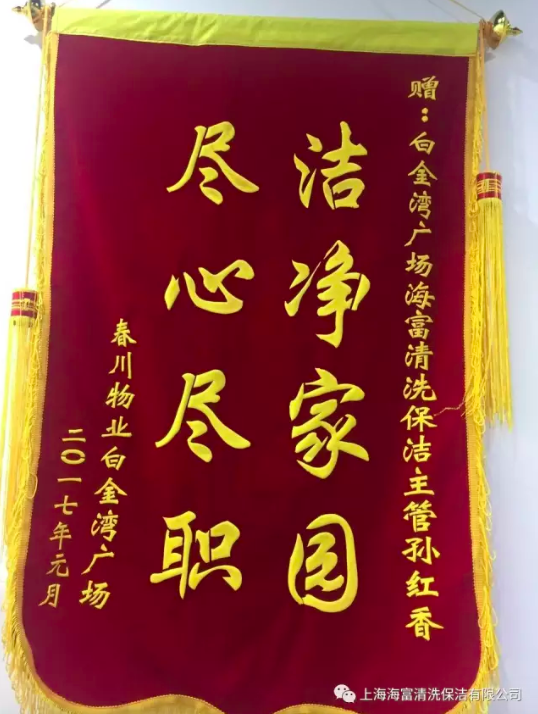 赠：白金湾广场海富清洗保洁主管孙红香
洁净家园
尽心尽职
春川物业白金湾广场
二〇一七年元月
上海海富清洗保洁有限公司